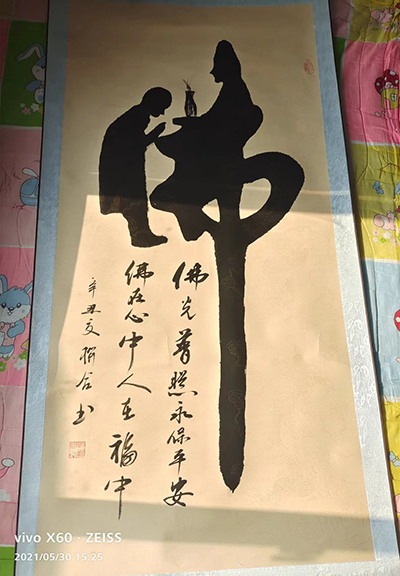 佛
佛光普照永保平安
佛在心中人在福中
辛丑夏聯合书
vivo X60 · ZEISS
2021/05/30 15:25